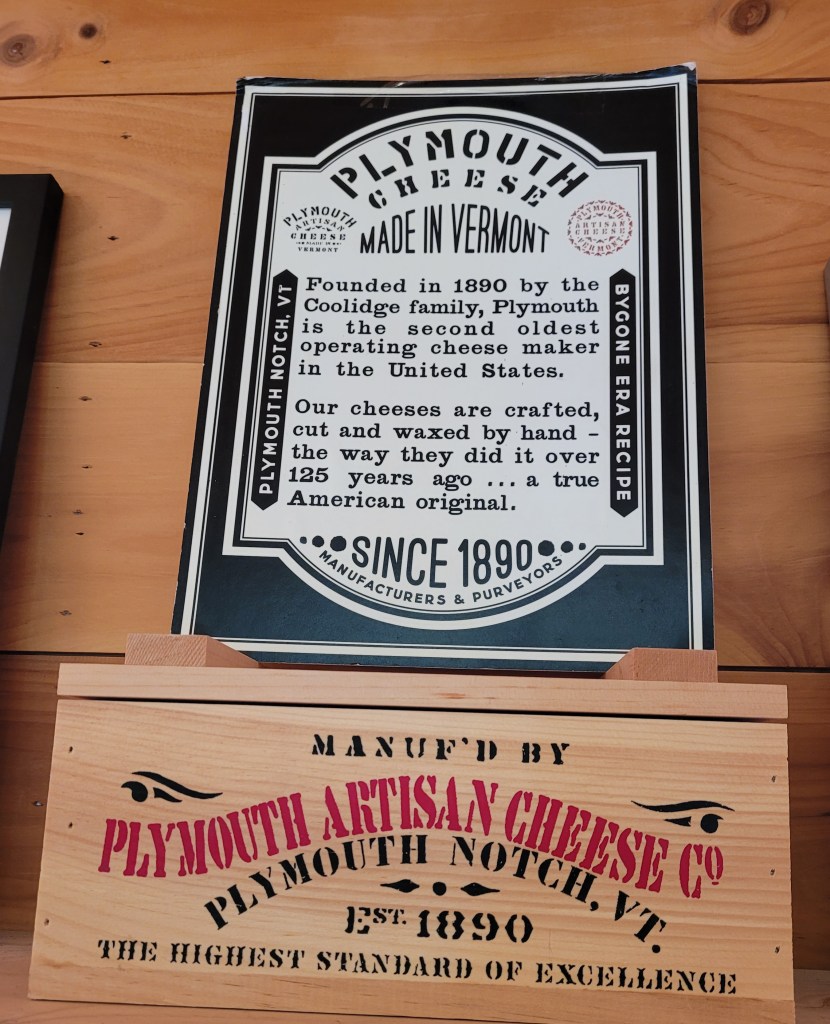 PLYMOUTH
CHEESE
MADE IN VERMONT
PLYMOUTH
ARTISAN
CHEESE
MADE IN
VERMONT
PLYMOUTH
ARTISAN
CHEESE
VERMONT
PLYMOUTH NOTCH, VT
Founded in 1890 by the
Coolidge family, Plymouth
is the second oldest
operating cheese maker
in the United States.
Our cheeses are crafted,
cut and waxed by hand –
the way they did it over
125 years ago ... a true
American original.
BYGONE ERA RECIPE
SINCE 1890
MANUFACTURERS & PURVEYORS
MANUF'D BY
PLYMOUTH ARTISAN CHEESE CO
PLYMOUTH NOTCH, VT.
EST. 1890
THE HIGHEST STANDARD OF EXCELLENCE